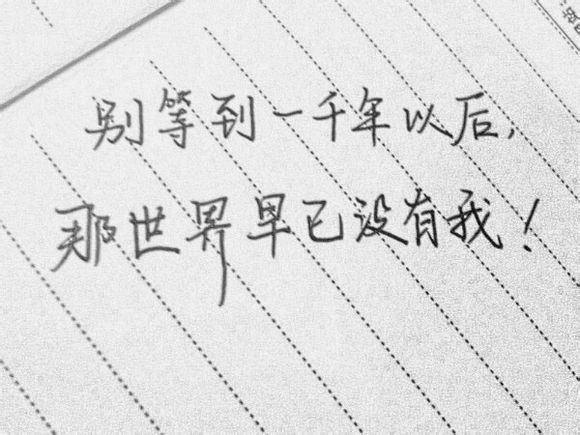 别等到一千年以后,
那世界早已没有我!